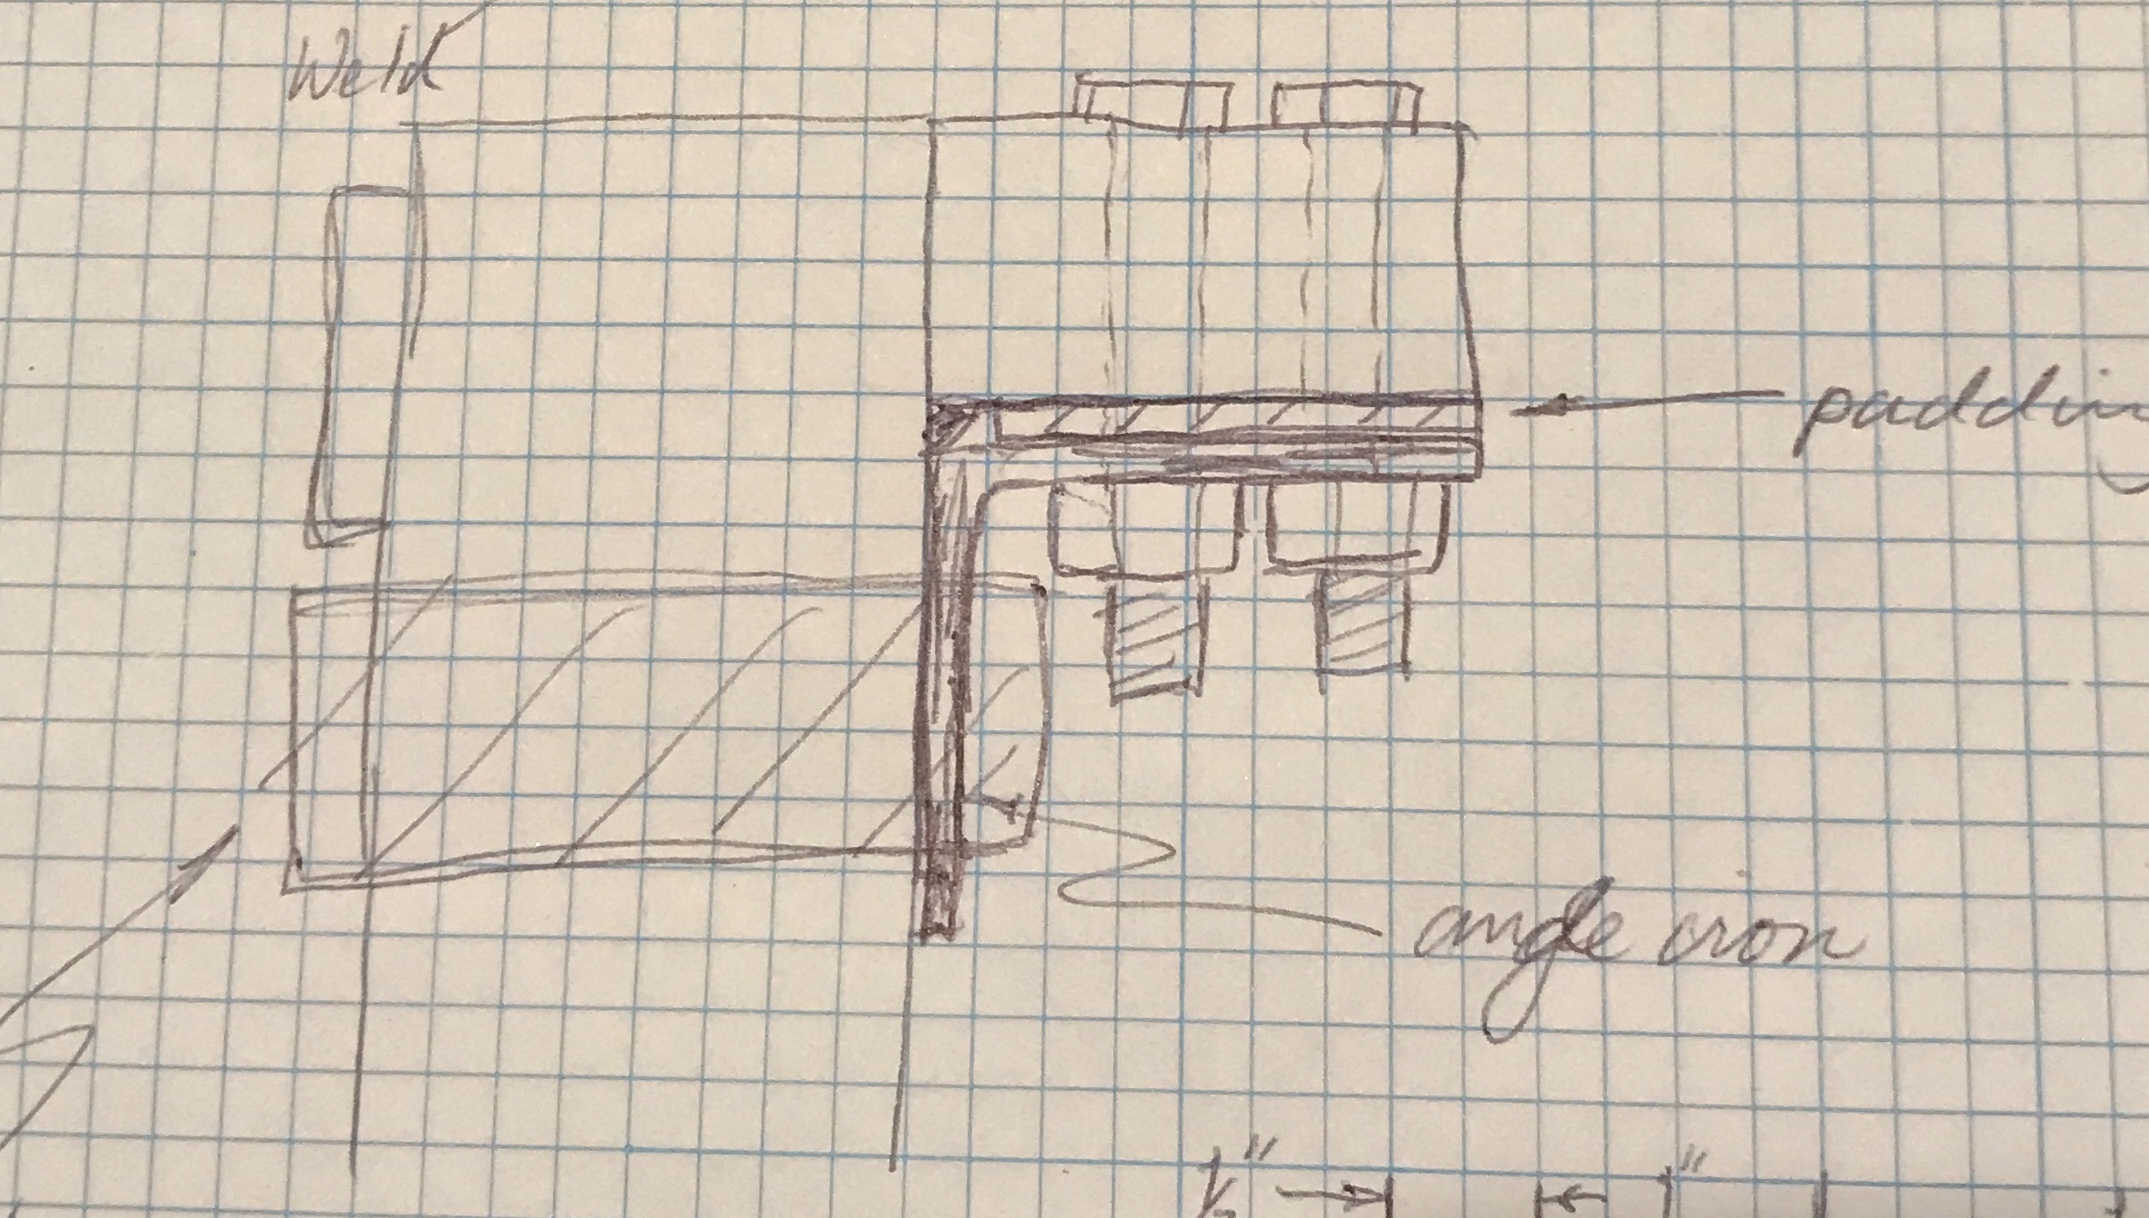 Weld
padding
angle iron
½" 1"